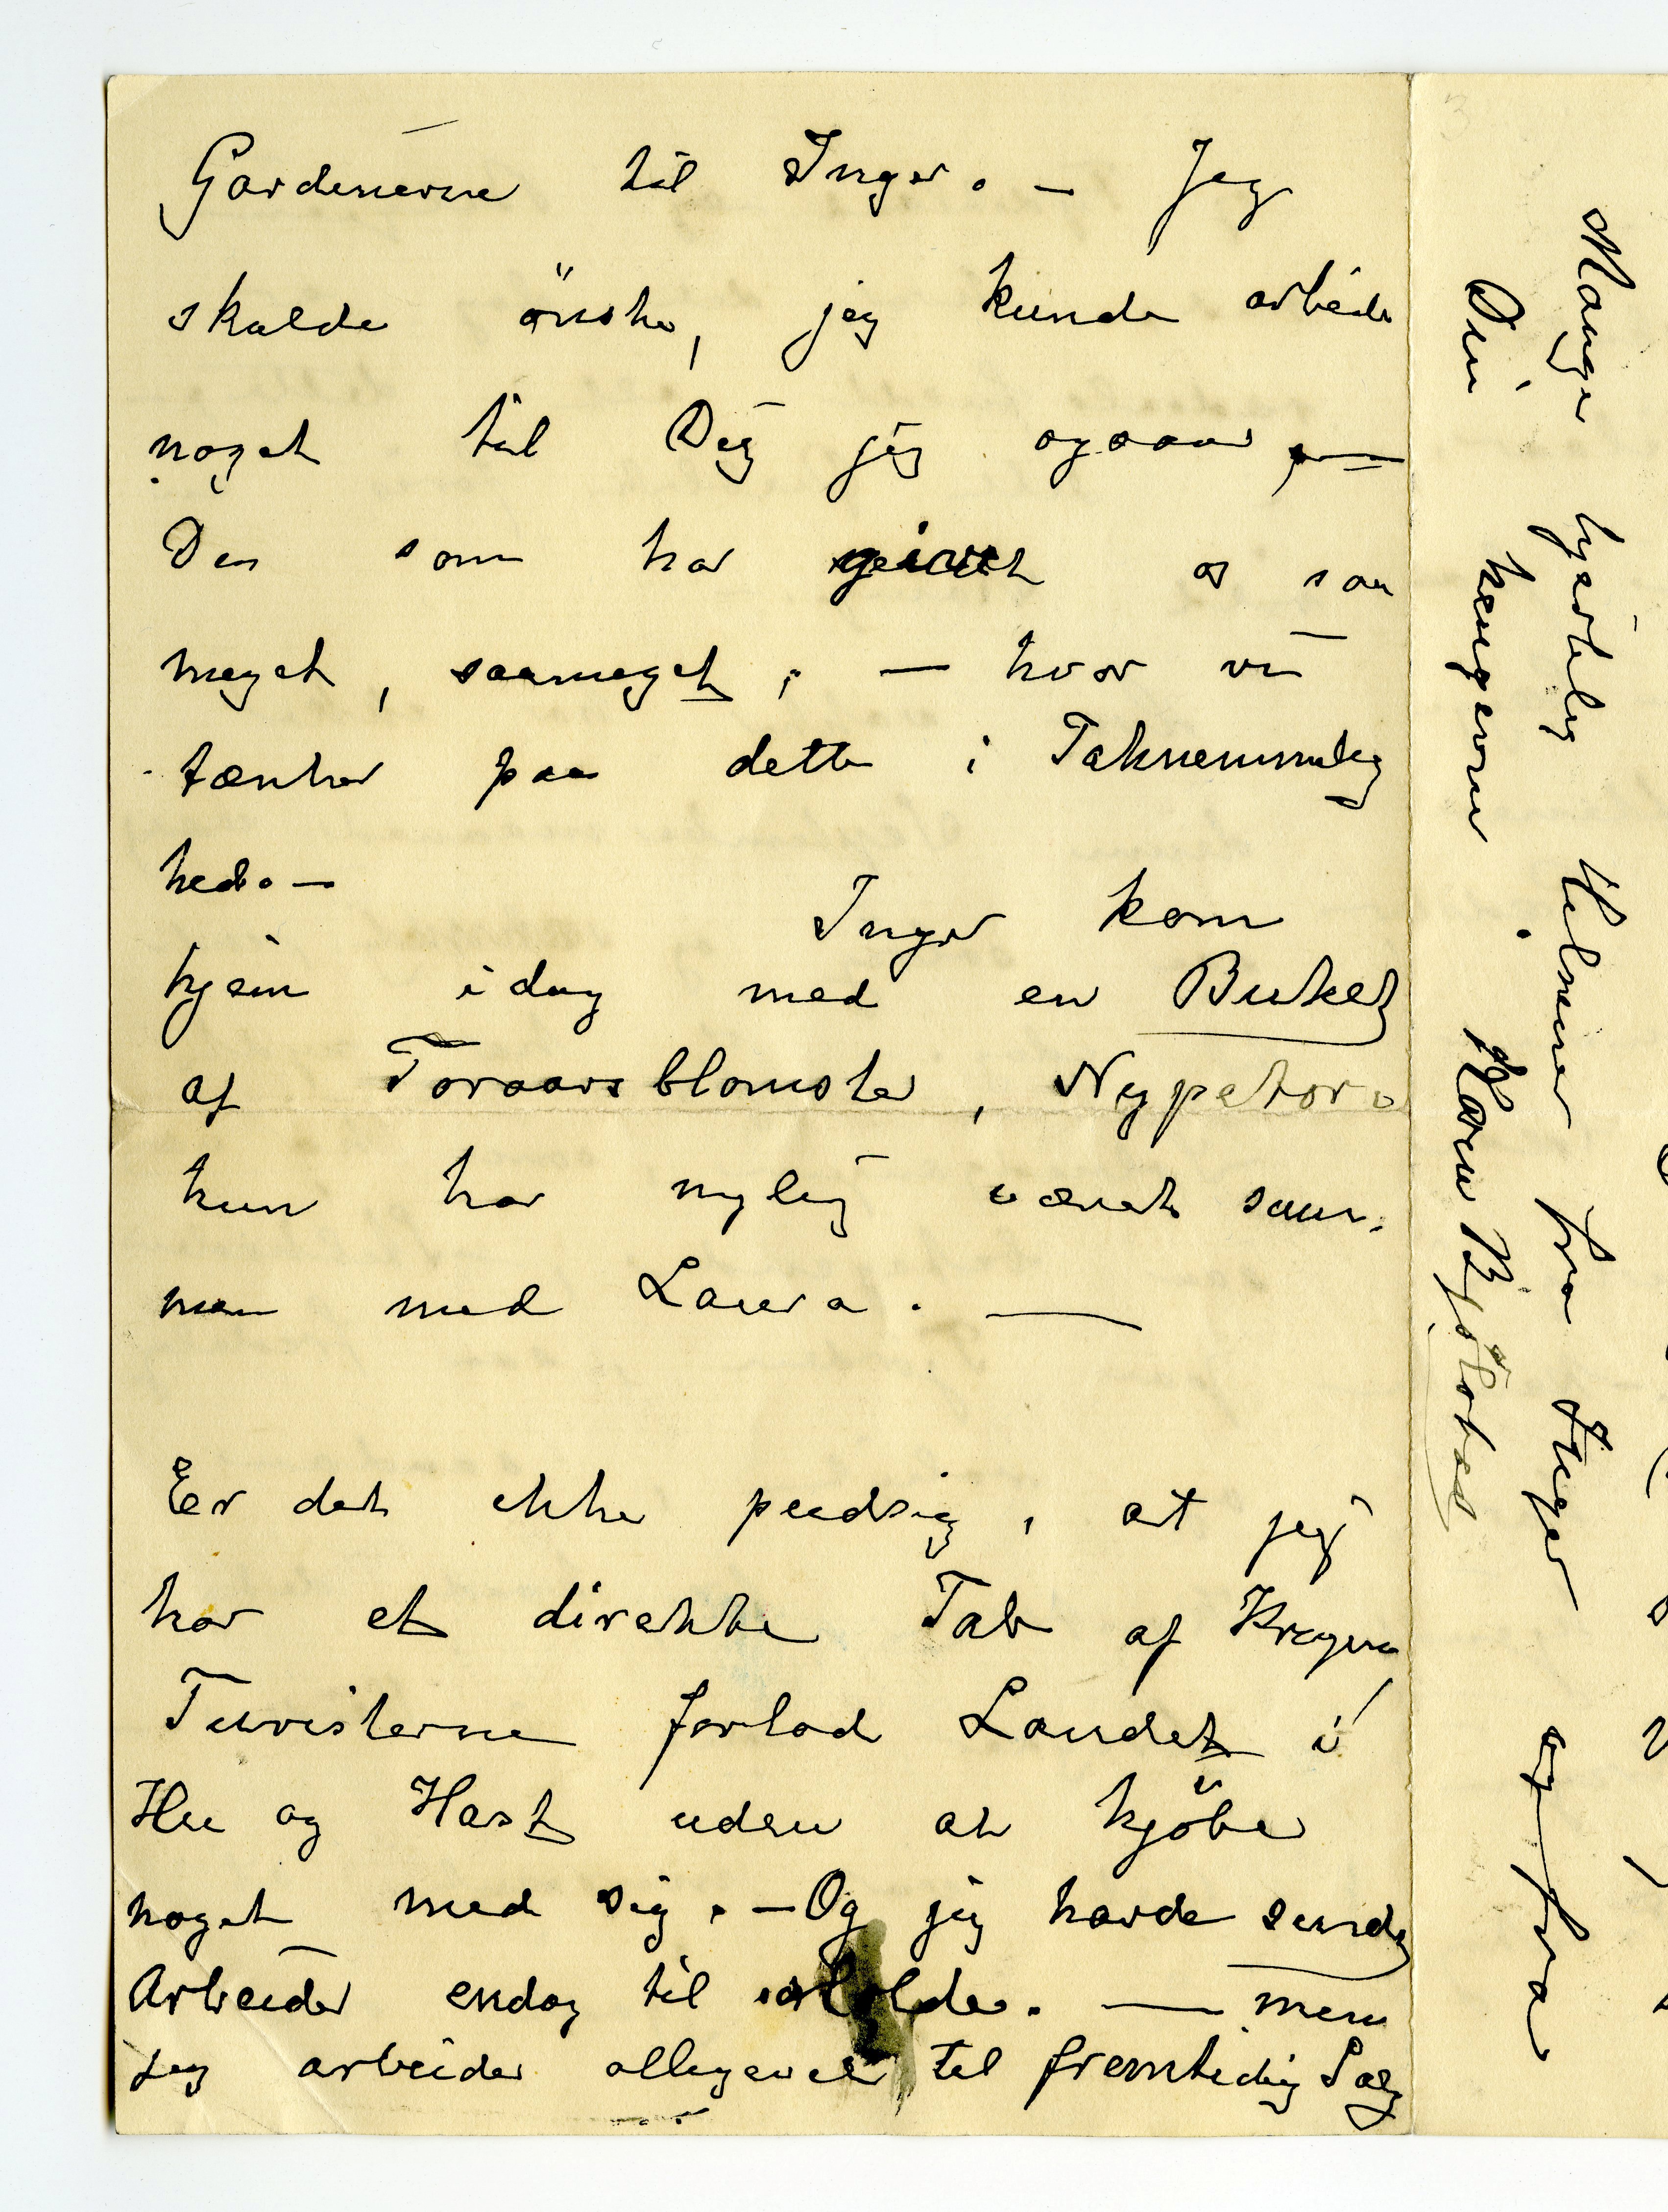 Gardinerne til Inger. — Jeg
skulde önske, jeg kunde arbeide
noget til Dig jeg ogsaa —
Den som har givet os saa
meget, saameget, — hvor vi
tænker paa dette i Taknemmelig
hed. —
Inger kom
hjem idag med en Buket
af Foraarsblomster, Nypetorn
hun har nylig været sam-
men med Laura. —
Er det ikke pudsig, at jeg
har et direkte Tab af Krigen
Turisterne forlod Landet i
Hu og Hast uden at kjöbe
noget med sig. — Og jeg havde sendt
Arbeider endog til Molde. — men
jeg arbeider alligevel til fremtidig Salg
Mange hjertelig Hilsener fra Inger og fra
Din hengivne Karen Bjølstad